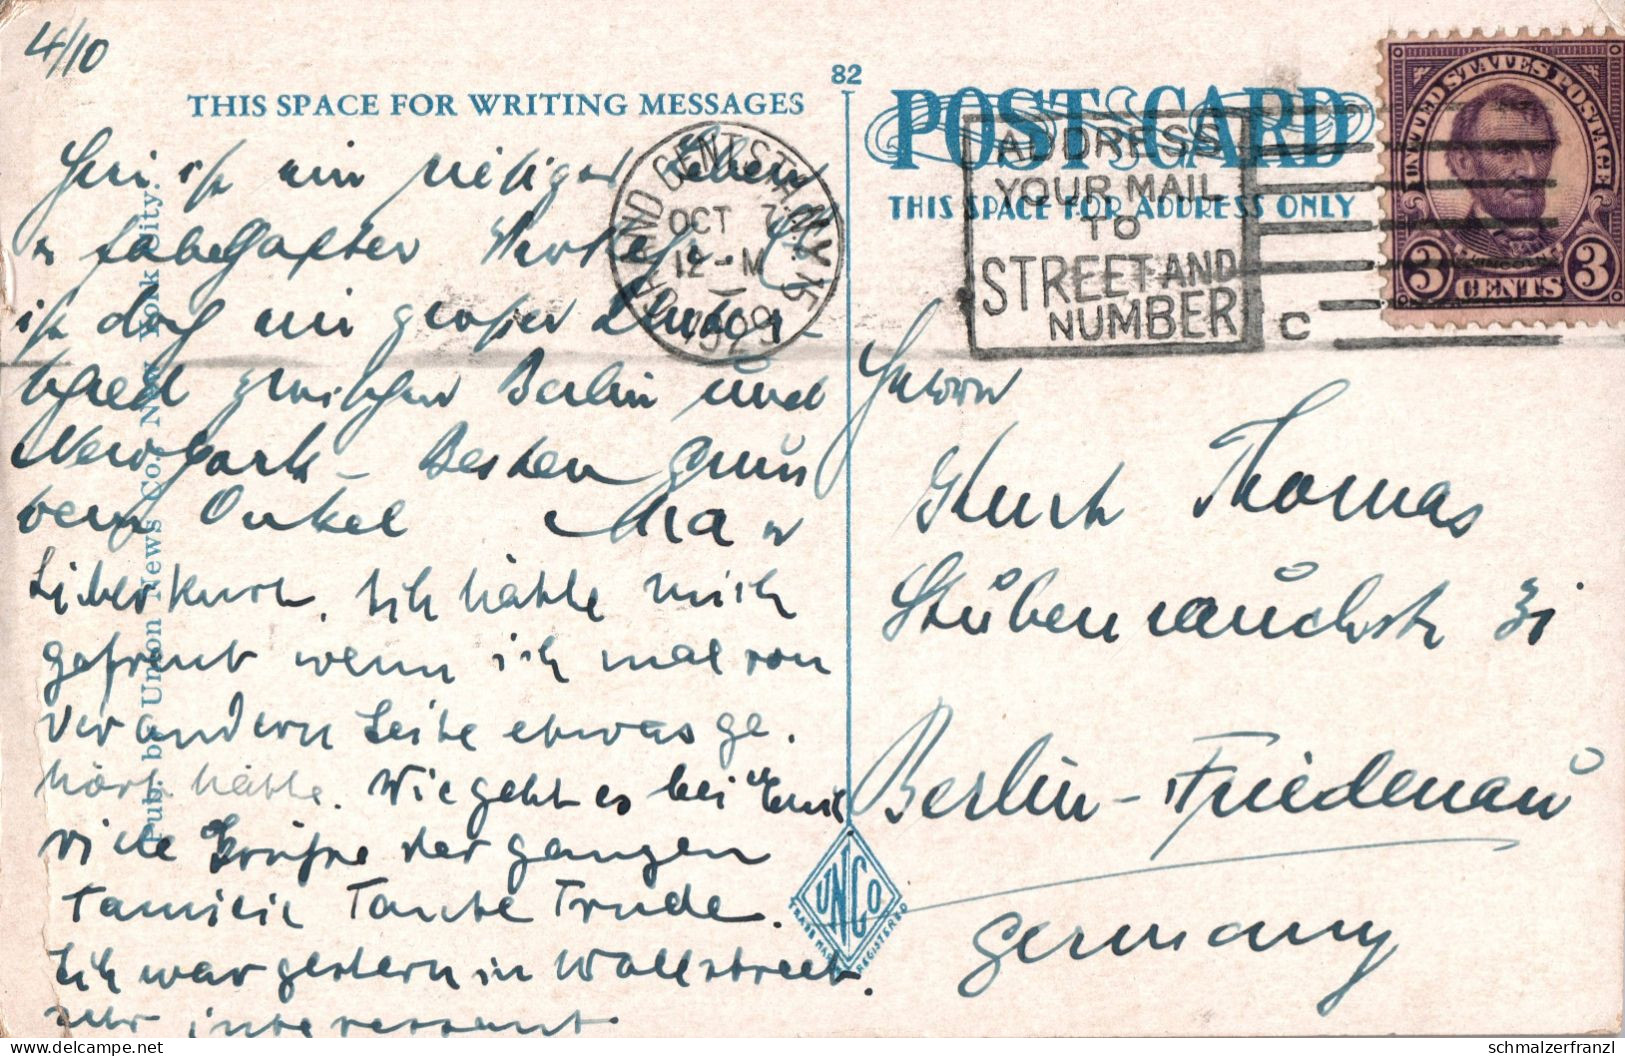 4/10
82
THIS SPACE FOR WRITING MESSAGES
POST CARD
THIS SPACE FOR ADDRESS ONLY
GRAND CENT. STA. N.Y. 15
OCT 7
12 - M
1929
ADDRESS
YOUR MAIL
TO
STREET AND
NUMBER
C
UNITED STATES POSTAGE
LINCOLN
3 CENTS 3
Hier ist ein riesiger Leben
u fabelhafter Verkehr. Es
ist doch ein großer Unter-
schied zwischen Berlin und
New York – Besten Gruß
Dein Onkel Max
Lieber Kurt. Ich hätte mich
gefreut wenn ich mal von
der andern Seite etwas ge.
hört hätte. Wie geht es bei Euch
viele Grüße der ganzen
Familie Tante Trude.
Ich war gestern in Wallstreet.
sehr interessant.
Herrn
Kurt Thomas
Stubenrauchstr
Berlin-Friedenau
Germany
Pub. by Union News Co., New York City.
UNCO
TRADE MARK REGISTERED
schmalzerfranzl